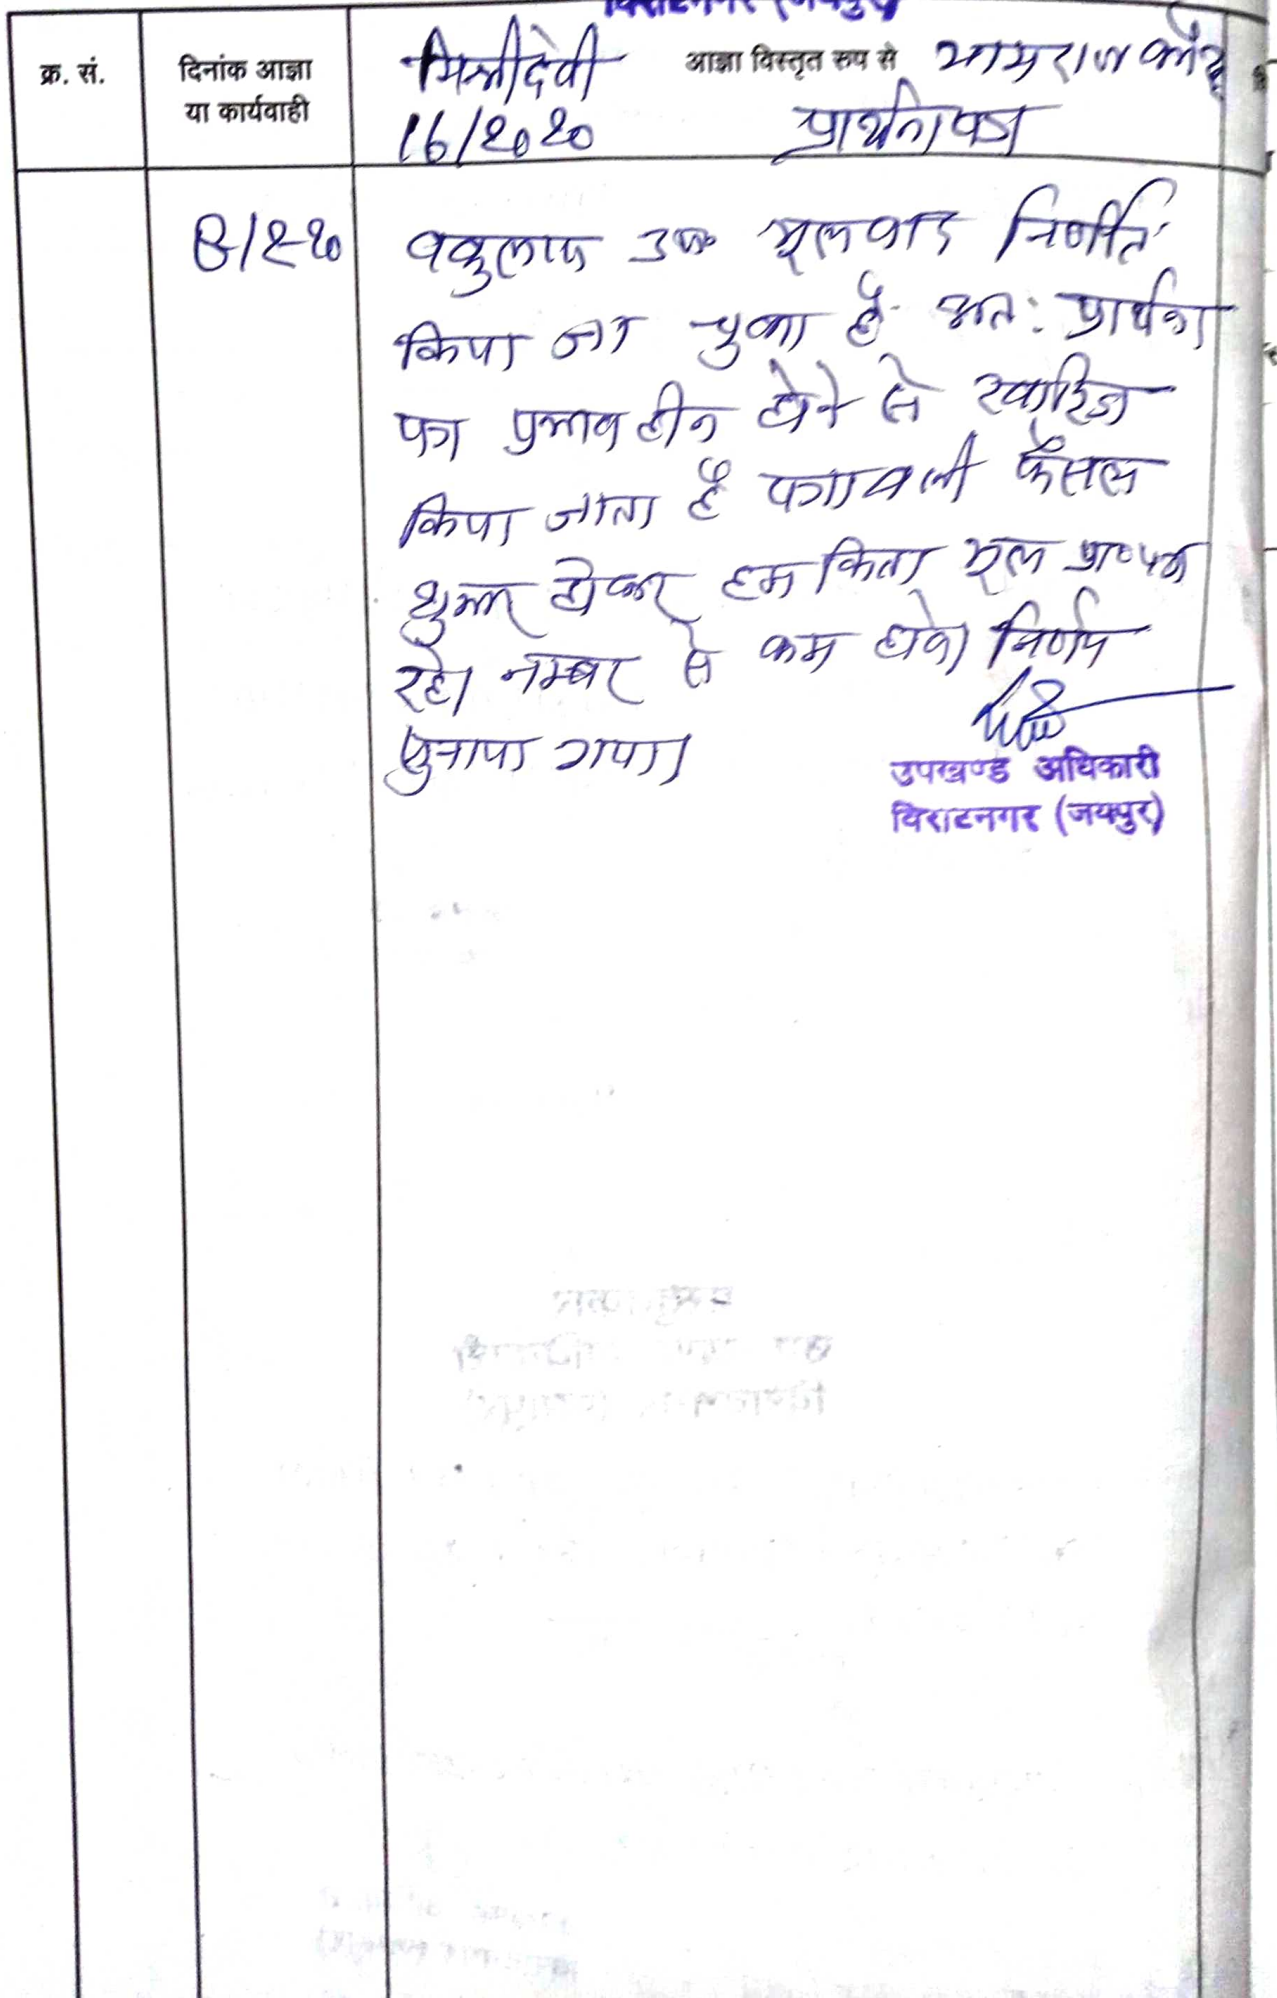 विराटनगर (जयपुर)
क्र. सं.
दिनांक आज्ञा
या कार्यवाही
मिश्रीदेवी आज्ञा विस्तृत रुप से
16/2020 प्रार्थनापत्र
वकुलाय उप. मूलवाद निर्णीत
किया जा चुका है अतः प्रार्थना
पत्र प्रभावहीन होने से खारिज
किया जाता है पत्रावली फैसल
शुमार होकर हम किता मूल
रहे। नम्बर से कम होवे। निर्णय
सुनाया गया।
उपखण्ड अधिकारी
विराटनगर (जयपुर)